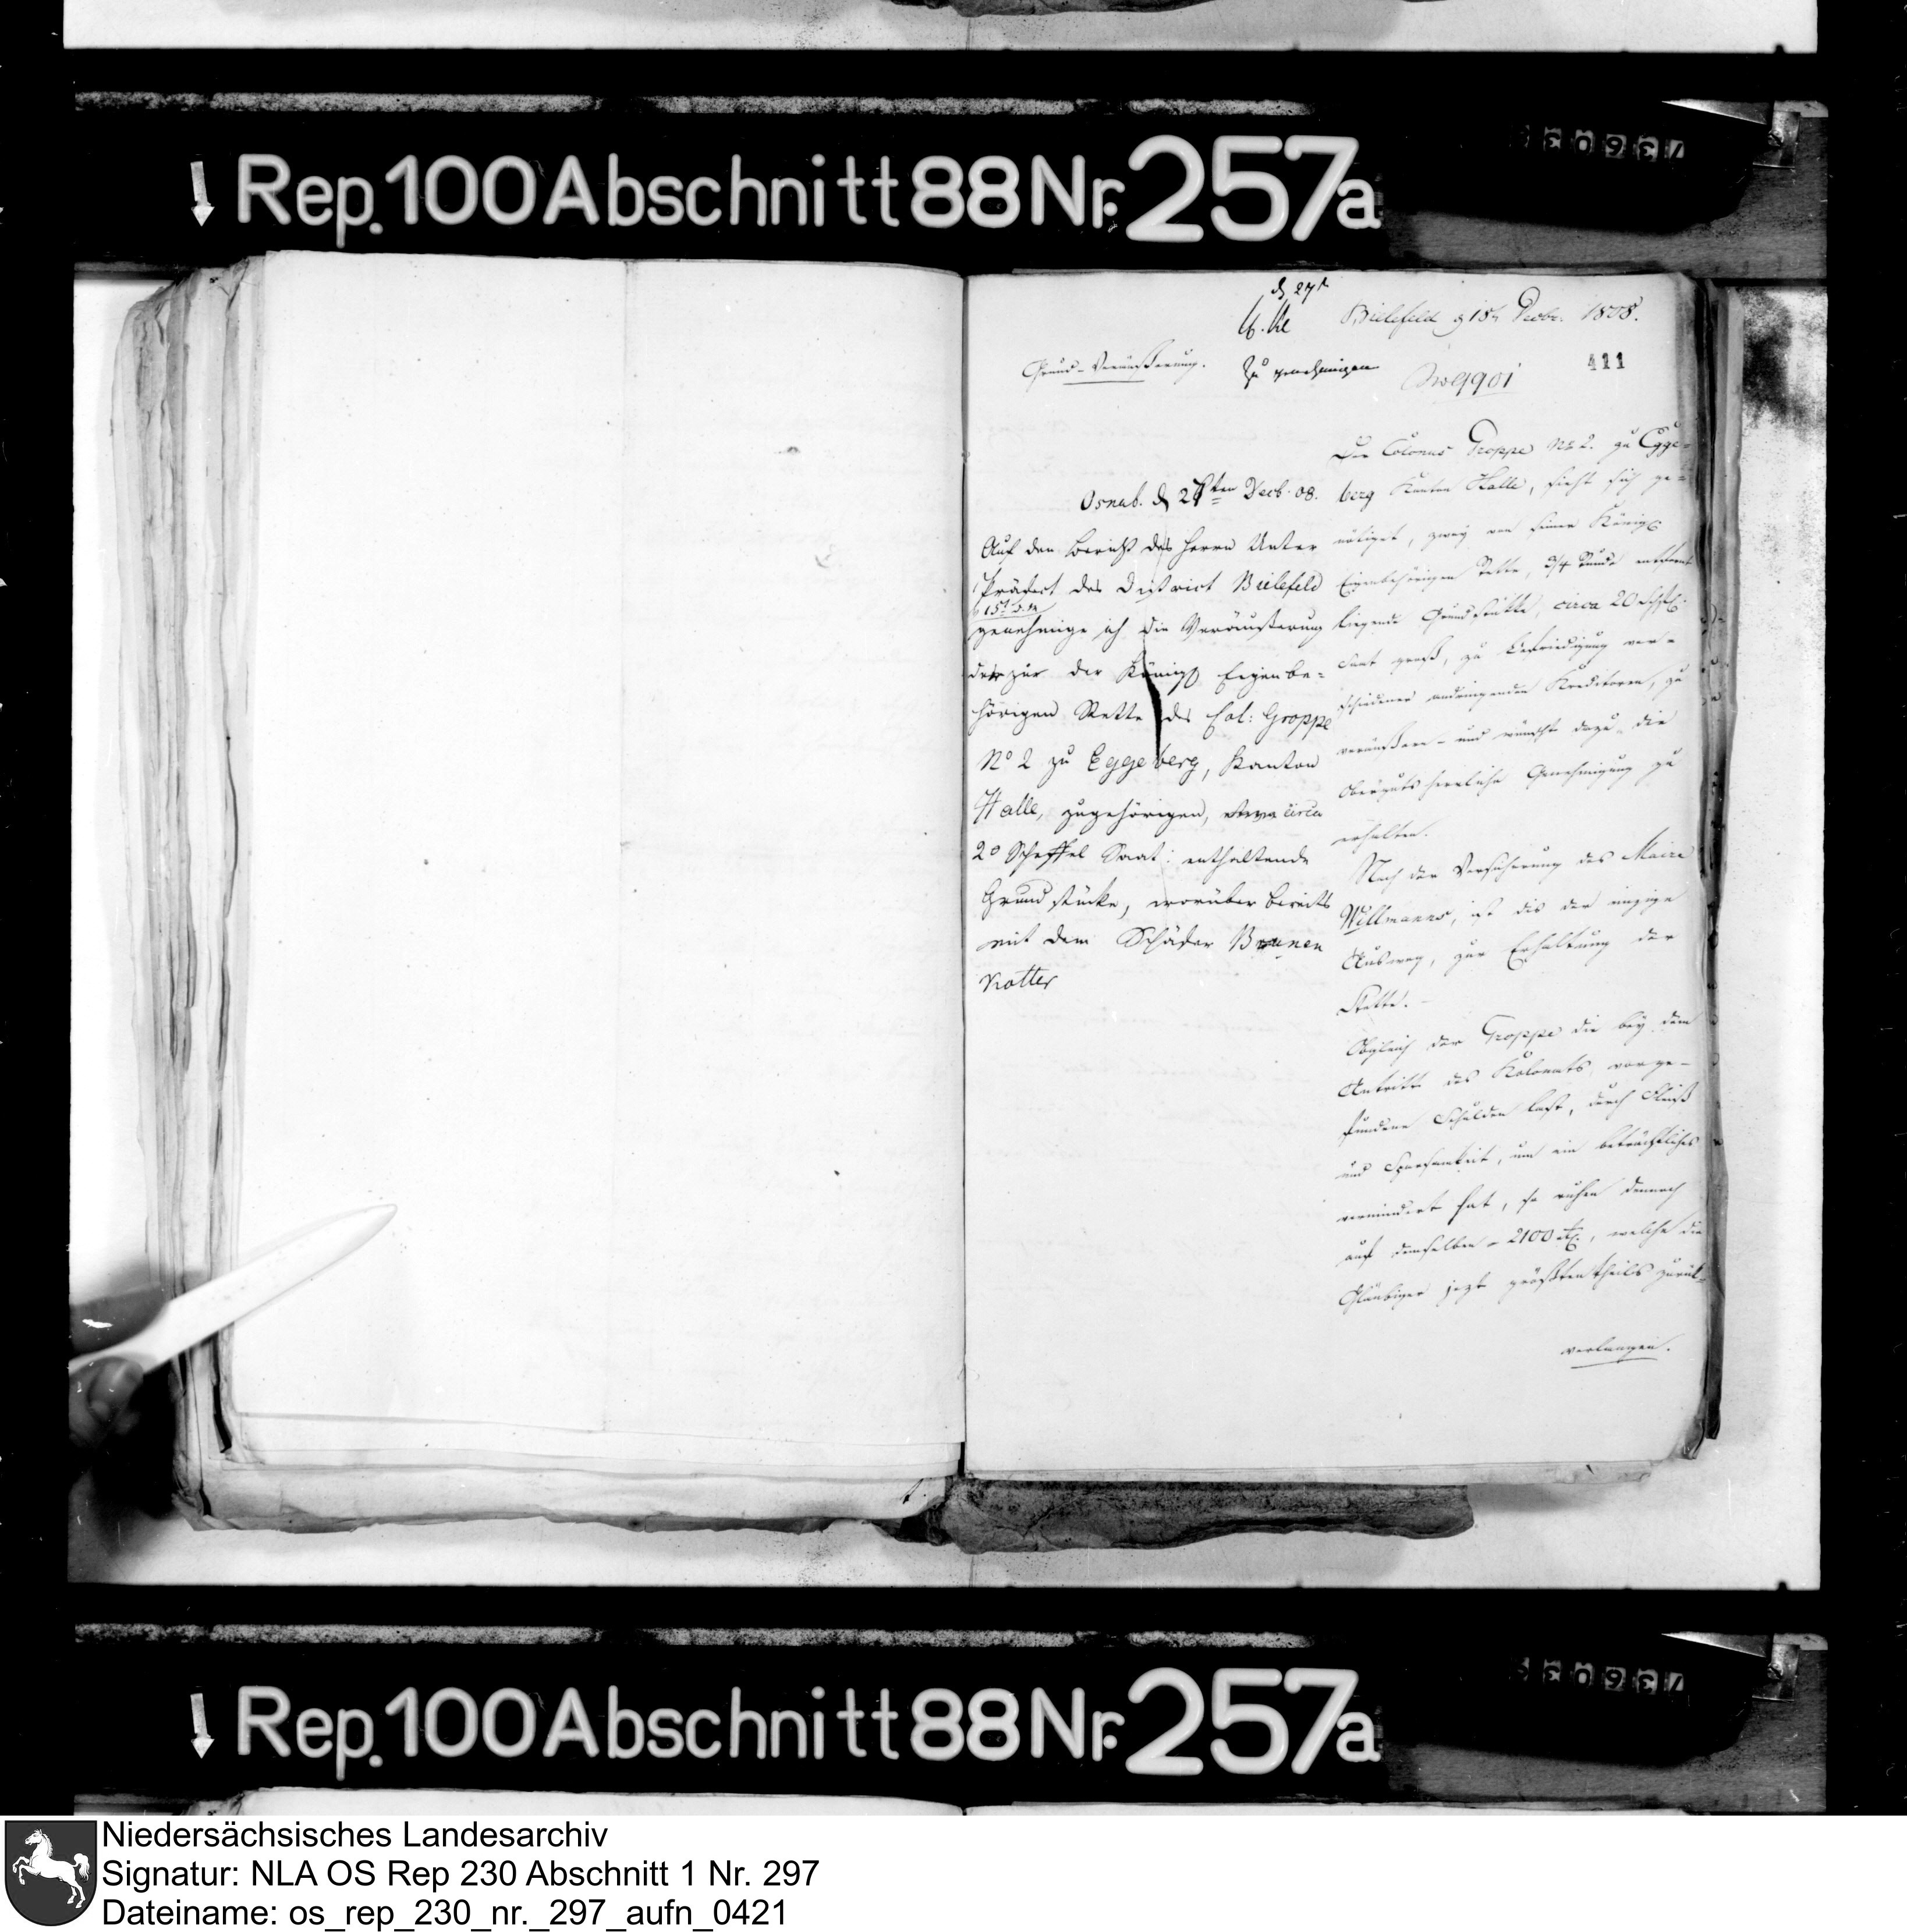 Rep. 100 Abschnitt 88 Nr. 257a
d 27t
Bielefeld d 15t Decbr. 1808.
Grund-Veräußerung.
Zu genehmigen
411
Osnab. d 27ten Decb. 08.
Auf den Bericht des Herrn Unter
Präfect des District Bielefeld
genehmige ich die Veräußerung
der zur der Königl Eigenbe-
hörigen Stette des Col: Groppe
No 2 zu Eggeberg, Kanton
Halle, zugehörigen, circa
20 Scheffel Saat: enthaltende
Grundstücke, worüber bereits
mit dem
Kotter
Der Colonus Groppe No 2. zu Egge-
berg Kanton Halle, sieht sich ge-
nötiget, zwey von seiner Königl
Eigenbehörigen Stette, 3/4 Stunde entfernt
liegende Grundstükke, circa 20 Schfl.
Saat groß, zu Befriedigung ver-
schiedener andringenden Kreditoren, zu
veräußern - und wünscht dazu die
Obergutsherrliche Genehmigung zu
erhalten.
Nach der Versicherung des Maire
Willmanns, ist dis der einzige
Ausweg, zur Erhaltung der
Stette. -
Obgleich der Groppe die bey dem
Antritt des Kolonats vorge-
fundene Schulden last, durch Fleiß
und Sparsamkeit, um ein beträchtliches
vermindert hat, so ruhen dennoch
auf demselben - 2100 rt., welche die
Gläubiger jezt größtentheils zurük-
verlangen.
Rep. 100 Abschnitt 88 Nr. 257a
Niedersächsisches Landesarchiv
Signatur: NLA OS Rep 230 Abschnitt 1 Nr. 297
Dateiname: os_rep_230_nr._297_aufn_0421